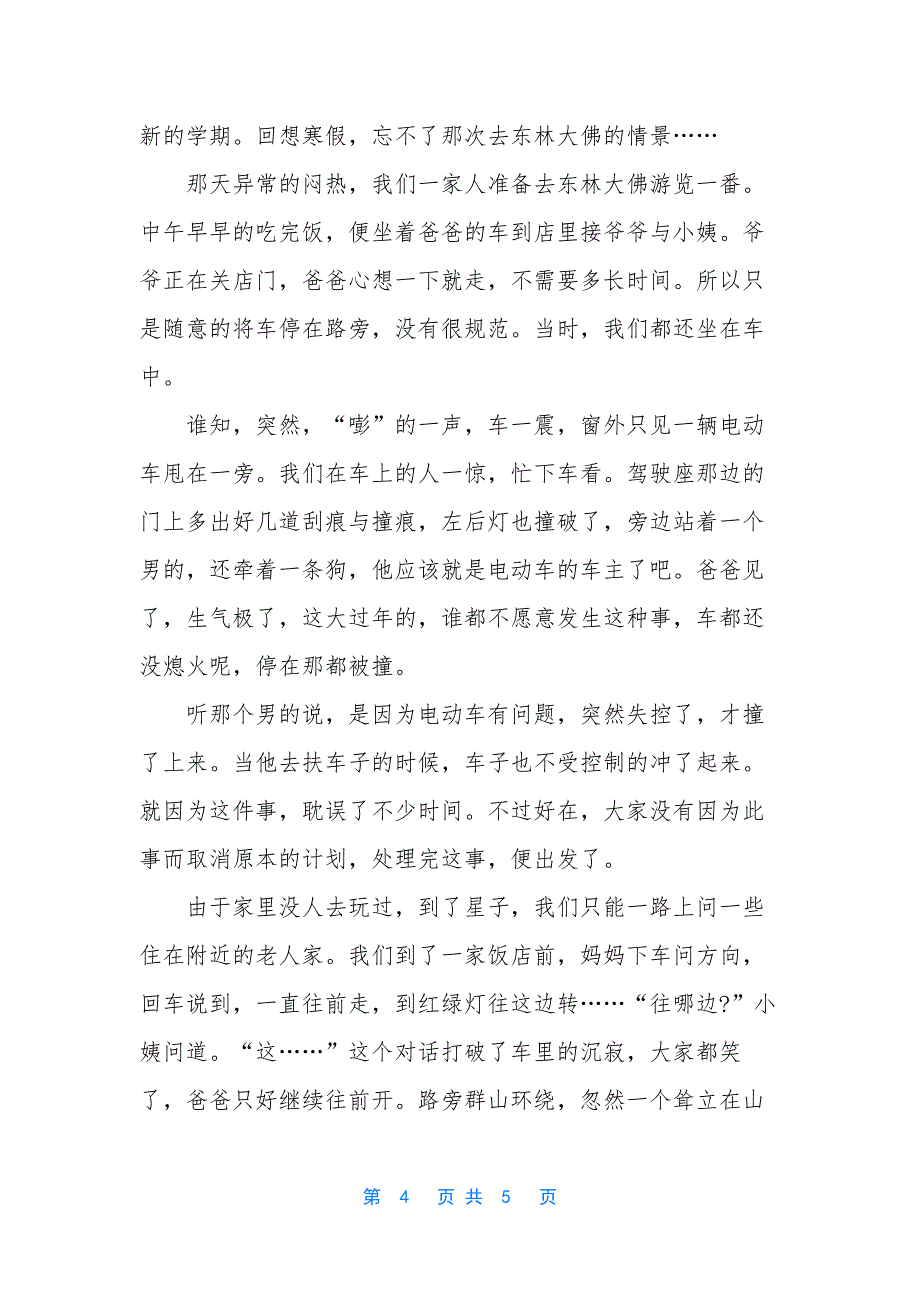 新的学期。回想寒假，忘不了那次去东林大佛的情景……
那天异常的闷热，我们一家人准备去东林大佛游览一番。
中午早早的吃完饭，便坐着爸爸的车到店里接爷爷与小姨。爷
爷正在关店门，爸爸心想一下就走，不需要多长时间。所以只
是随意的将车停在路旁，没有很规范。当时，我们都还坐在车
中。
谁知，突然，“嘭”的一声，车一震，窗外只见一辆电动
车甩在一旁。我们在车上的人一惊，忙下车看。驾驶座那边的
门上多出好几道刮痕与撞痕，左后灯也撞破了，旁边站着一个
男的，还牵着一条狗，他应该就是电动车的车主了吧。爸爸见
了，生气极了，这大过年的，谁都不愿意发生这种事，车都还
没熄火呢，停在那都被撞。
听那个男的说，是因为电动车有问题，突然失控了，才撞
了上来。当他去扶车子的时候，车子也不受控制的冲了起来。
就因为这件事，耽误了不少时间。不过好在，大家没有因为此
事而取消原本的计划，处理完这事，便出发了。
由于家里没人去玩过，到了星子，我们只能一路上问一些
住在附近的老人家。我们到了一家饭店前，妈妈下车问方向，
回车说到，一直往前走，到红绿灯往这边转……“往哪边?”小
姨问道。“这……”这个对话打破了车里的沉寂，大家都笑
了，爸爸只好继续往前开。路旁群山环绕，忽然一个耸立在山
第 4 页 共 5 页